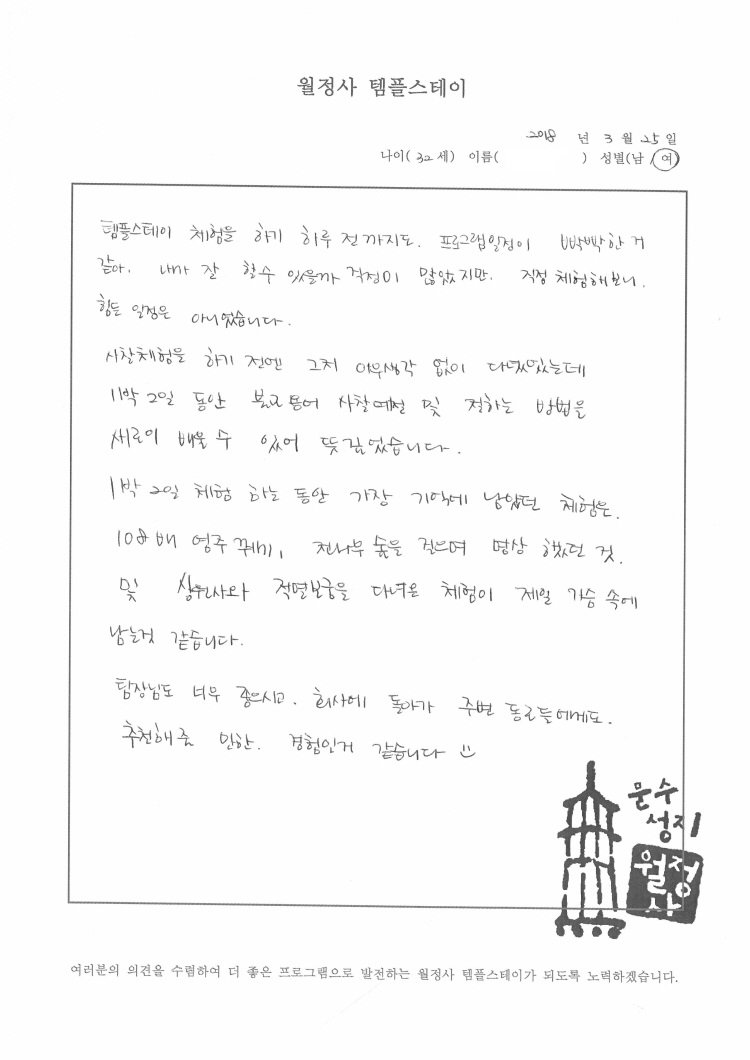 월정사 템플스테이
2018 년 3 월 25 일
나이( 32 세) 이름( ) 성별(남 / 여)
템플스테이 체험을 하기 하루 전까지도. 프로그램일정이 빡빡한 거
같아. 내가 잘 할수 있을까 걱정이 많았지만. 직접 체험해보니.
힘든 일정은 아니였습니다.
사찰체험을 하기 전엔 그저 아무생각 없이 다녔었는데
1박 2일 동안 사찰예절 및 절하는 방법을
새로이 배울 수 있어 뜻깊었습니다.
1박 2일 체험 하는 동안 가장 기억에 남았던 체험은.
108배 염주 꿰기, 전나무 숲을 걸으며 명상 했던 것.
및 상원사와 적멸보궁을 다녀온 체험이 제일 가슴 속에
남는것 같습니다.
팀장님도 너무 좋으시고. 회사에 돌아가 주변 동료들에게도.
추천해줌 만한. 경험인거 같습니다
문수
성지
월정
사
여러분의 의견을 수렴하여 더 좋은 프로그램으로 발전하는 월정사 템플스테이가 되도록 노력하겠습니다.